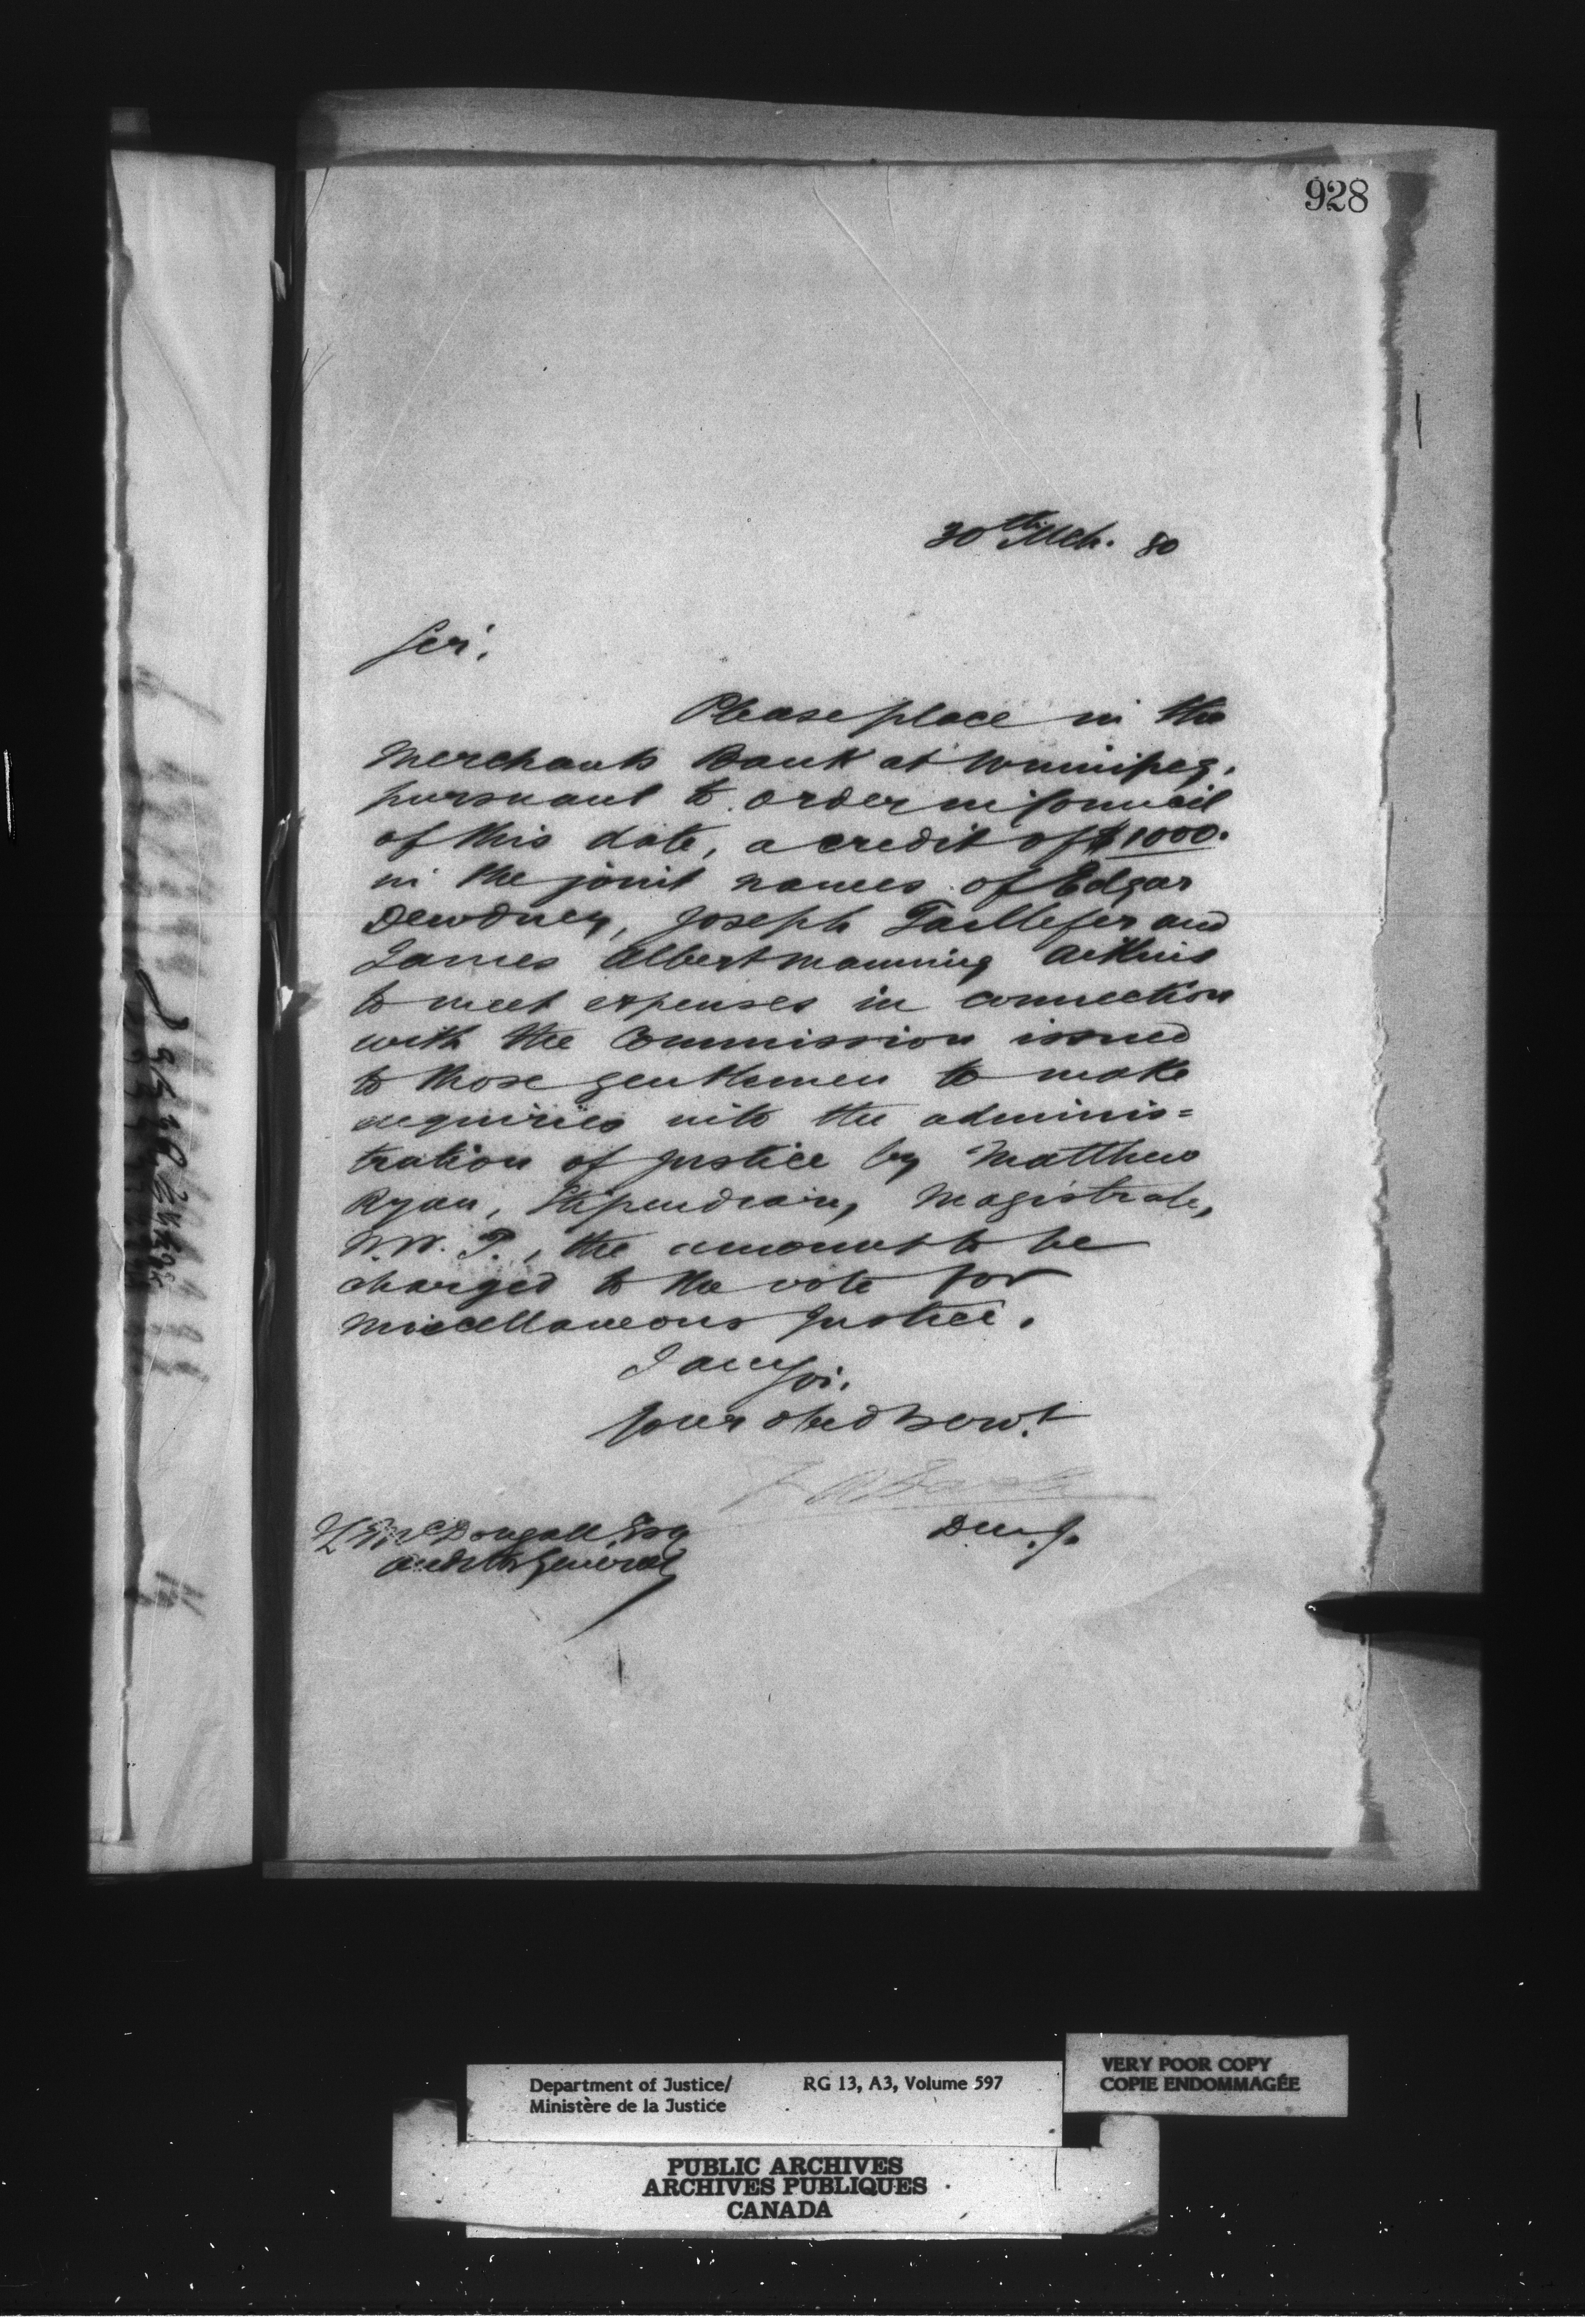 928
30th Mch. 80
Sir,
Please place in the
Merchants Bank at Winnipeg,
pursuant to order in Council
of this date, a credit of $1000.
in the joint names of Edgar
Dewdney, Joseph Taillefer and
James Albert Manning Aikins
to meet expenses in connection
with the Commission issued
to those gentlemen to make
enquiries into the adminis=
tration of justice by Matthew
Ryan, Stipendiary Magistrate,
N.W.T., the amount to be
charged to the vote for
Miscellaneous Justice.
I am Sir,
Your obed Servt
D.M.J.
McDougall Esq
Auditor General
Department of Justice/ RG 13, A3, Volume 597
Ministère de la Justice
VERY POOR COPY
COPIE ENDOMMAGÉE
PUBLIC ARCHIVES
ARCHIVES PUBLIQUES
CANADA